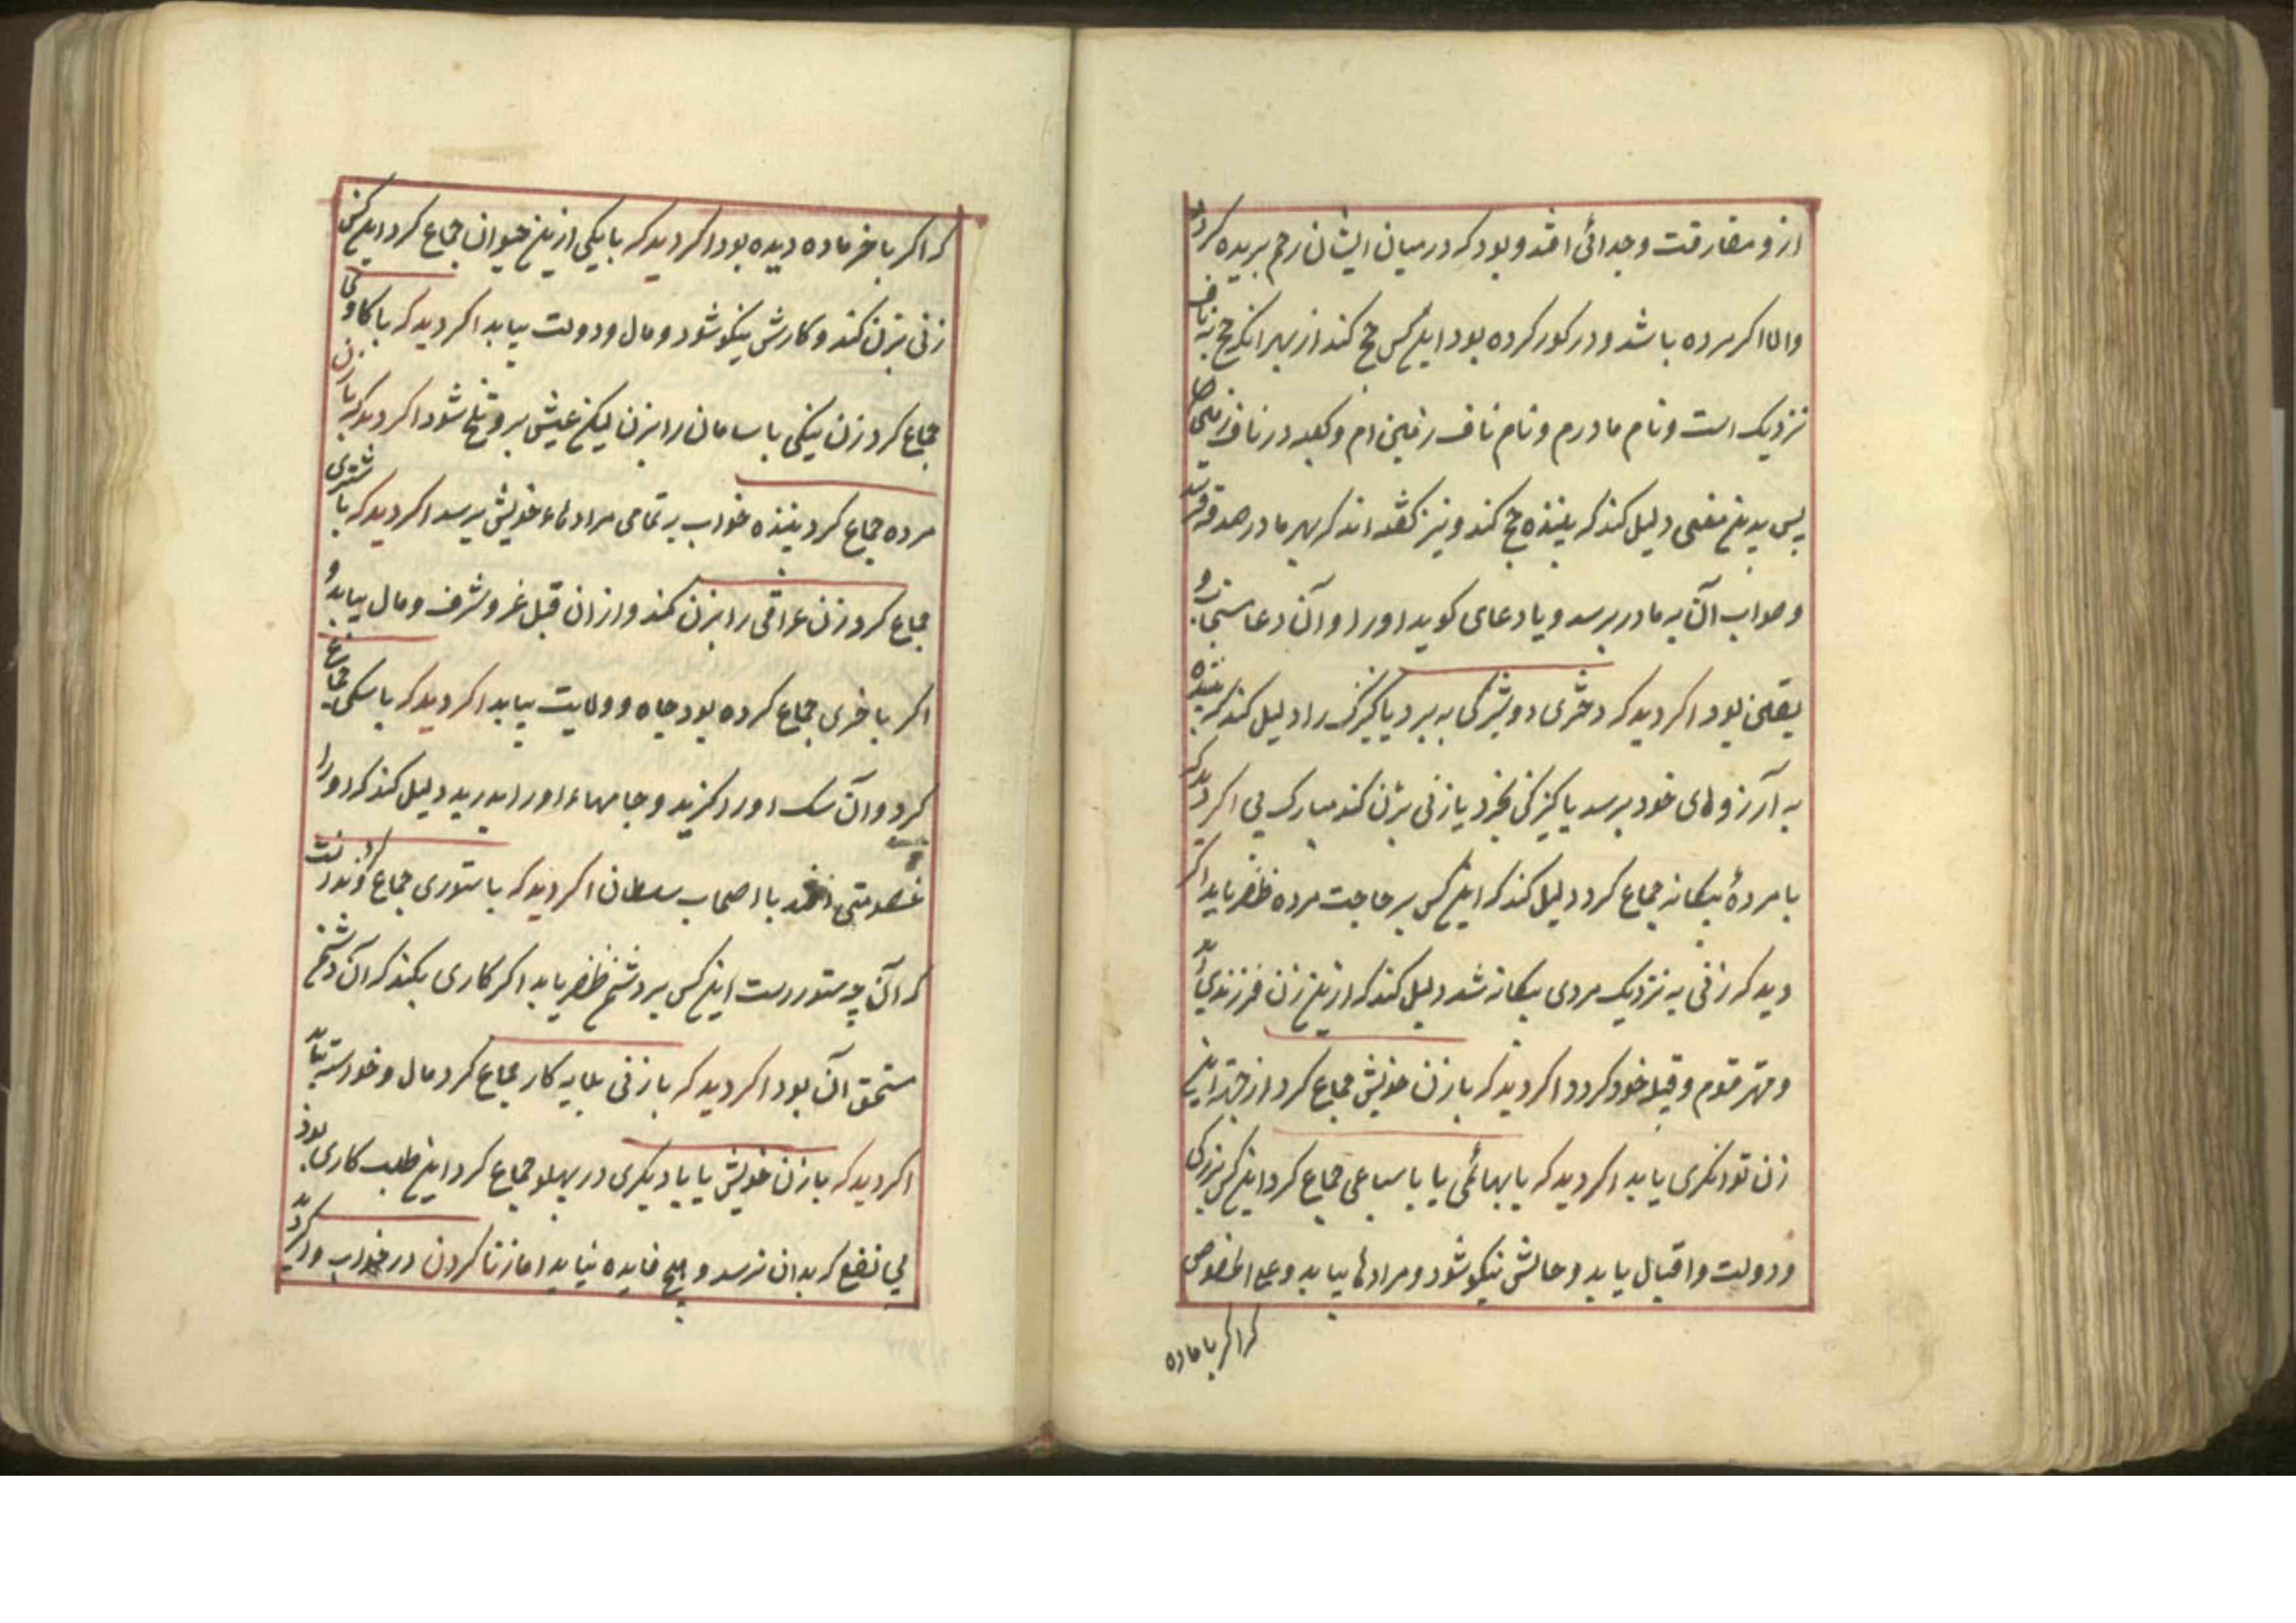 ازو مفارقت و جدائی افتد و بود که در میان ایشان رحم بریده کردد
والا اکر مرده باشد و در کور کرده بود این کس حج کند از بهر انکه حج بناف
نزدیک است و نام مادرم و نام ناف زمین ام و کعبه در ناف زمین
پس بدین معنی دلیل کند که بیننده حج کند و نیز کفته اند که بهر مادر صدقه فرستد
و صواب آن به مادر برسد و یا دعای کوید اورا و آن دعا مستجاب و
یقین بود اکر دید که دختری دوشیزکی به برد یا کنیزک را دلیل کند که بیننده
به آرزوهای خود برسد یا کنیزکی بخرد یا زنی بزن کند مبارک پی اکر دید که
با مردهٔ بیکانه جماع کرد دلیل کند که این کس بر حاجت مرده ظفر یابد اکر
دید که زنی به نزدیک مردی بیکانه شد دلیل کند که ازین زن فرزندی آید
و مهتر قوم و قبیله خود کردد اکر دید که با زن خویش جماع کرد از جهة این
زن توانکری یابد اکر دید که با بهائمی یا با سباعی جماع کرد این کس بزرکی
و دولت و اقبال یابد و حالش نیکو شود و مرادها بیابد و علی الخصوص
که اکر با ماده
که اکر با خر ماده دیده بود اکر دید که با یکی ازین حیوان جماع کرد این کس
زنی بزن کند و کارش نیکو شود و مال و دولت بیابد اکر دید که با کاوی
جماع کرد زن نیکی با سامان را بزن لیکن عیش برو تلخ شود اکر دید که با زن
مرده جماع کرد بیننده خواب به تمامی مرادهاء خویش برسد اکر دید که با شتری
جماع کرد زن عراقی را بزن کند و ازان قبل عز و شرف و مال بیابد و
اکر با خری جماع کرده بود جاه و ولایت بیابد اکر دید که با سکی جماع
کرد و آن سک اورا کزید و جامهاء اورا بدرید دلیل کند که اورا
خصومتی افتد با اصحاب سلطان اکر دید که با ستوری جماع کرد
که آن چه ستورست این کس بر دشمن ظفر یابد اکر کاری بکند که آن دشمن
مستحق آن بود اکر دید که با زنی بلایه کار جماع کرد مال و خواسته بیابد
اکر دید که با زن خویش یا با دیکری در پهلو جماع کرد این طلب کاری بود
بی نفع که بدان نرسد و هیچ فایده نیابد اما زنا کردن در خواب و اکر دید